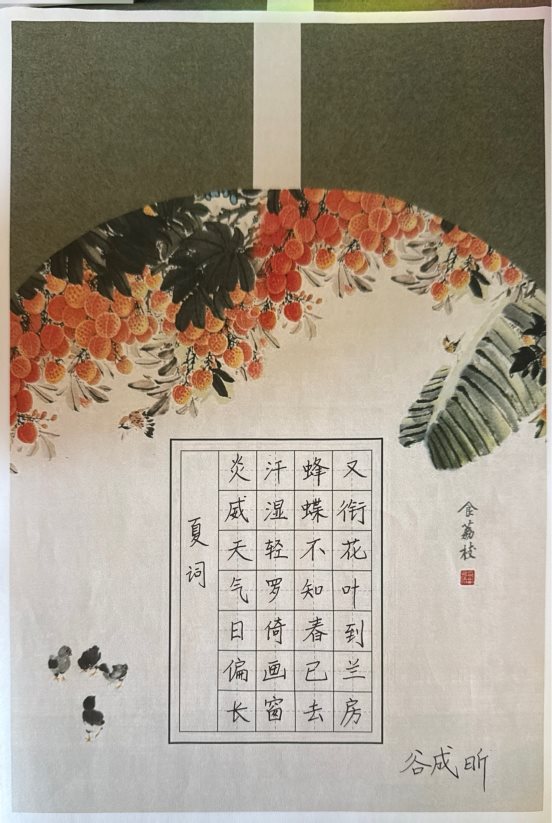 夏词
炎威天气日偏长
汗湿轻罗倚画窗
蜂蝶不知春已去
又衔花叶到兰房
食荔枝
谷成昕